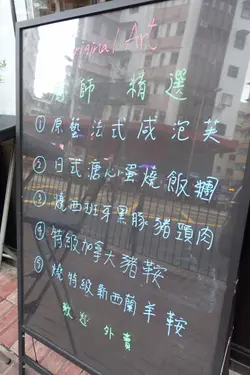 Original Art
廚師精選
① 原藝法式咸泡芙
② 日式溏心蛋燒飯糰
③ 燒西班牙黑豚豬頸肉
④ 特級加拿大豬鞍
⑤ 燒特級新西蘭羊鞍
歡迎外賣